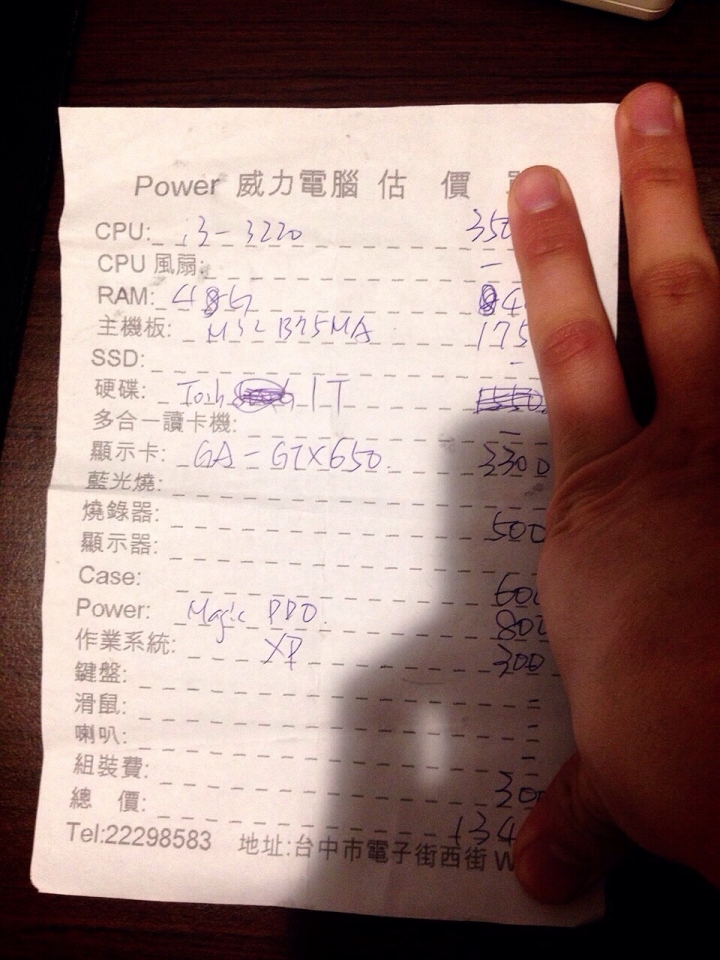 Power 威力電腦 估 價
CPU: i3-3220 350
CPU 風扇: -
RAM: 4G
主機板: MSI B75MA 175
SSD: -
硬碟: Tosh 1T
多合一讀卡機: -
顯示卡: GA-GTX650 3300
藍光燒:
燒錄器: 500
顯示器:
Case: 600
Power: Magic 800
作業系統: XP 300
鍵盤: -
滑鼠: -
喇叭: -
組裝費: 300
總 價: 134
Tel:22298583 地址:台中市電子街西街